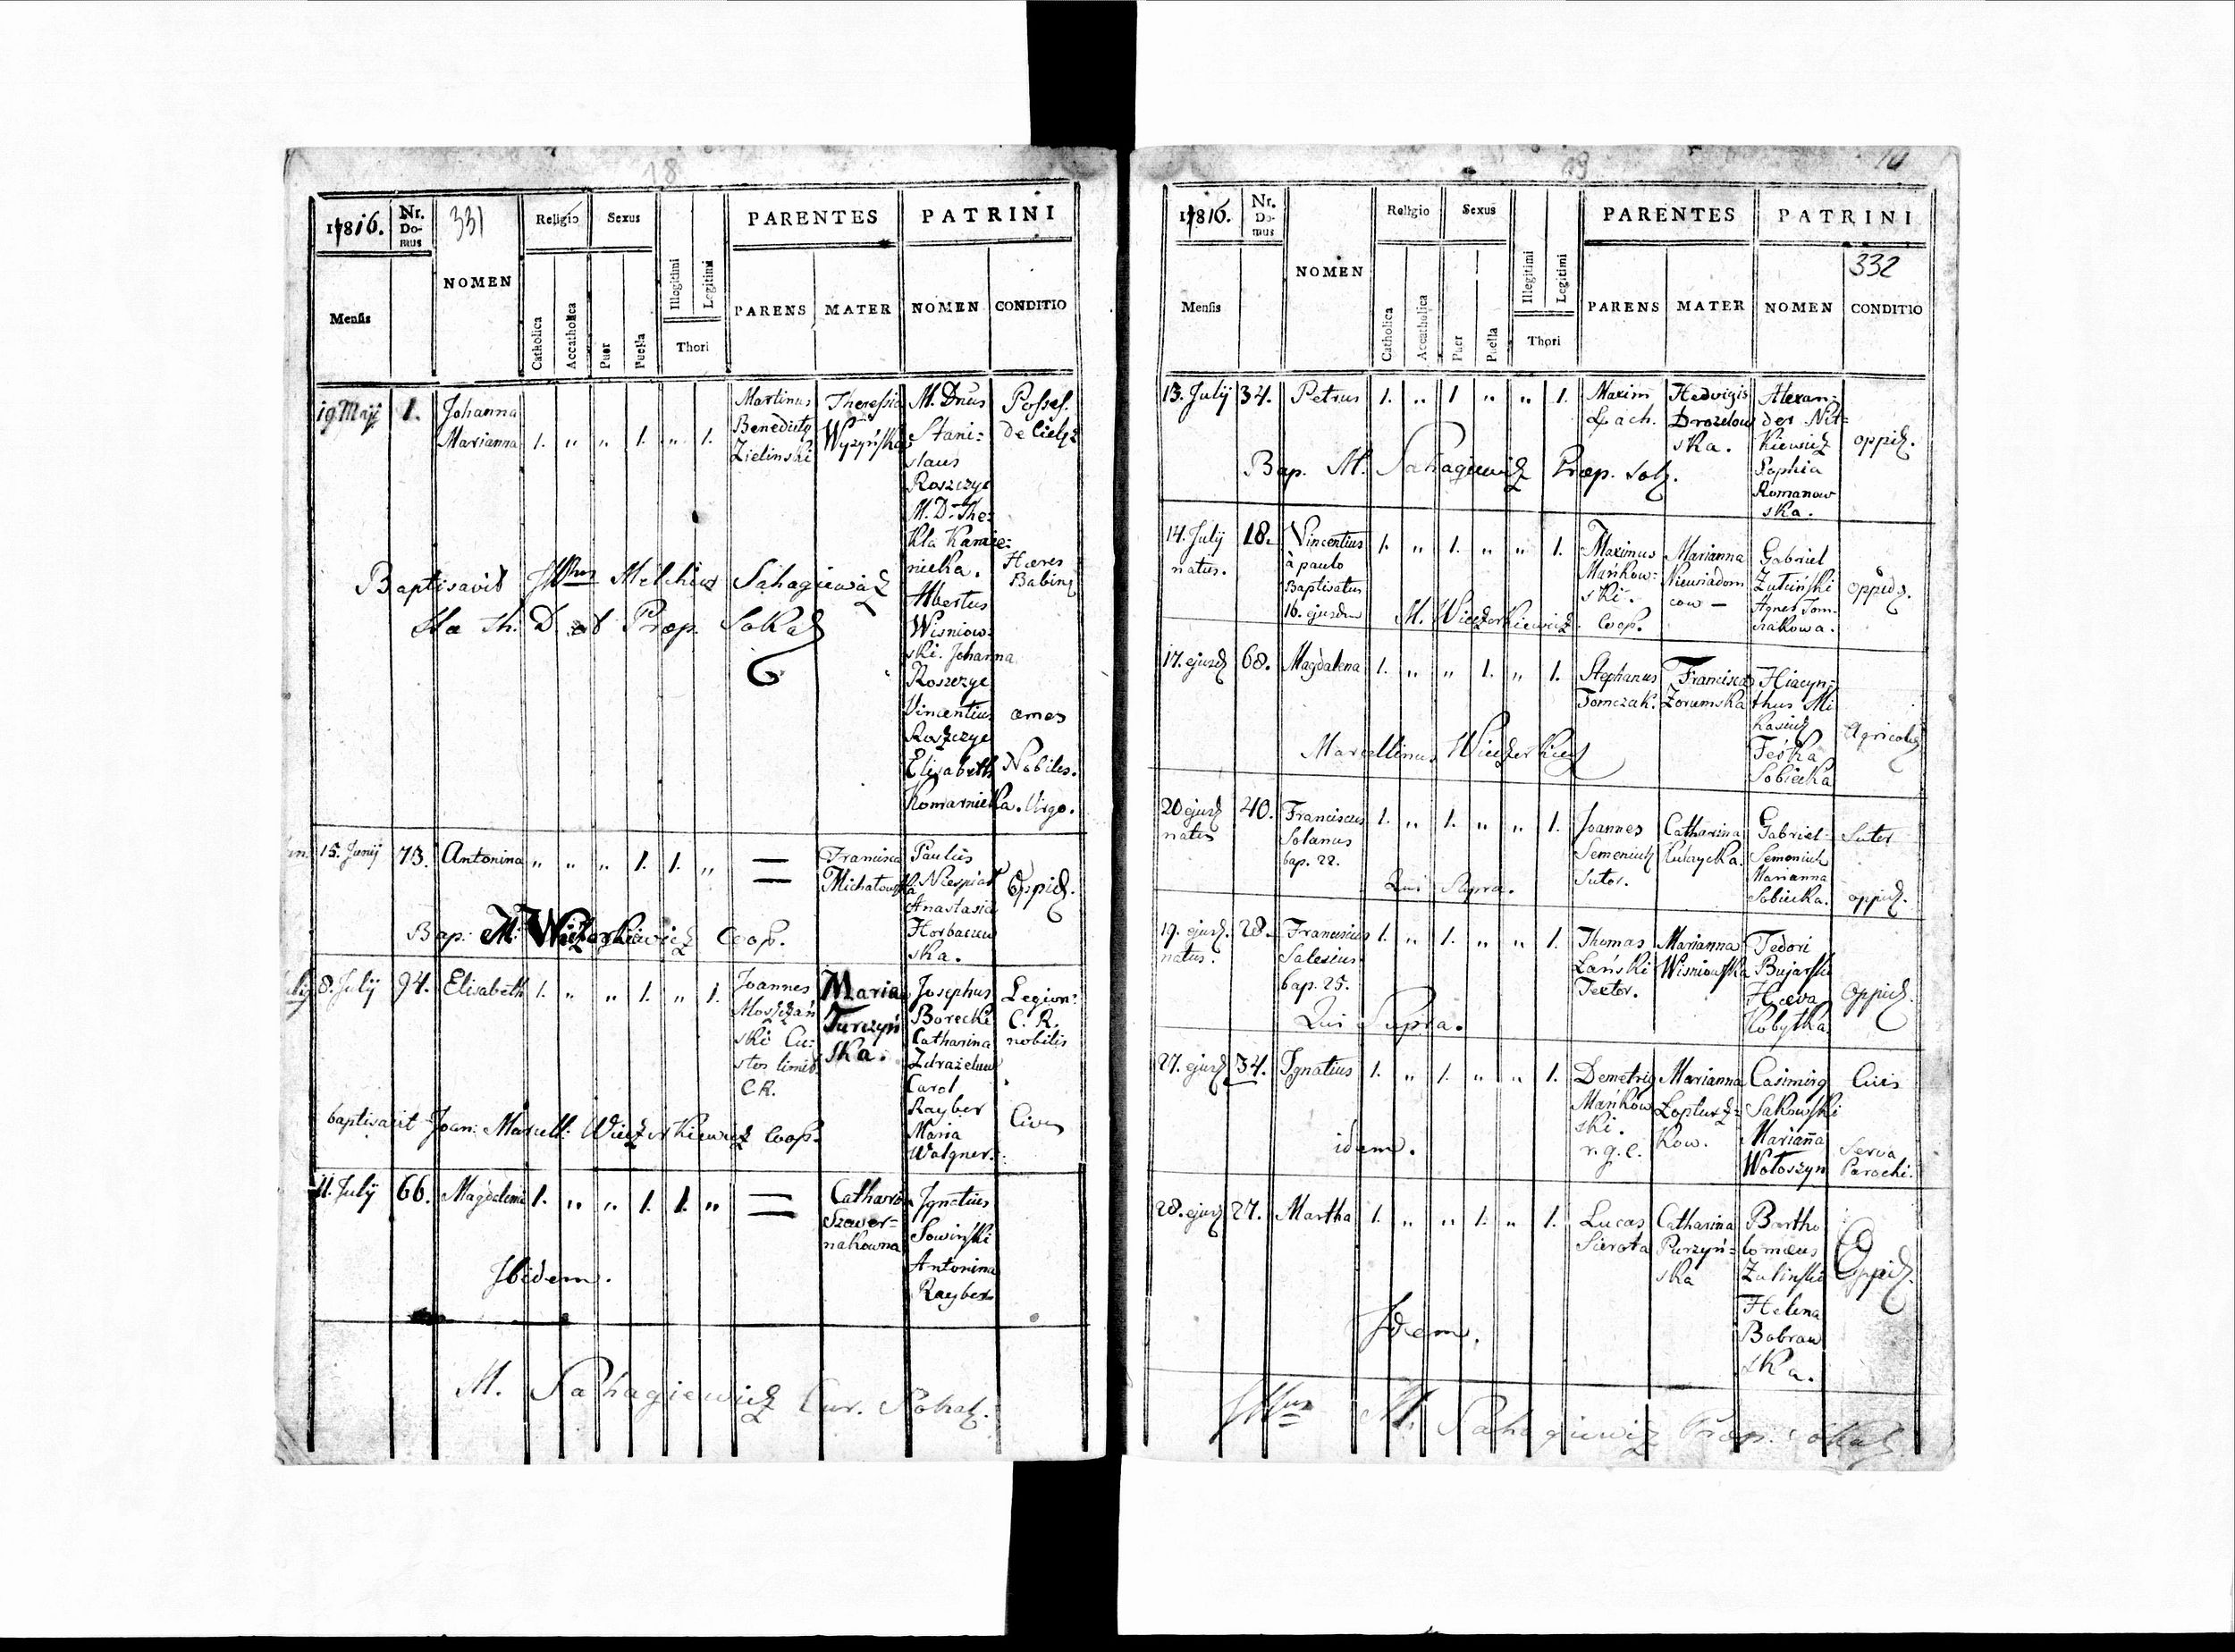 18
17816.
Nr. Do- mus
331
Religio
Sexus
Illegitimi
Legitimi
PARENTES
PATRINI
Mensis
NOMEN
Catholica
Accatholica
Puer
Puella
Thori
PARENS
MATER
NOMEN
CONDITIO
19 Maji 1. Johanna Marianna 1. " " 1. " 1.
Martinus
Benedictus
Zielinski
Theressia
Wyzyńska
M. Dnus
Stani=
slaus
Roszczyc
M. D. The=
kla Kamie=
niecka.
Albertus
Wisniow
ski. Johanna
Roszczyc
Vincentius
Roszczyc
Elisabeth
Komarnicka. Virgo.
Posses.
Hæres
omes
Nobiles.
Baptisavit Melchior Sahagiewicz
Præp. Sokal
15. Junij 73. Antonina " " " 1. 1. "
Francisca
Michałowska
Paulus
Niespiał
Anastasia
Horbaczew
ska.
Oppid.
Bap: M. Wieżorkiewicz Coop.
8. July 94. Elisabeth 1. " " 1. " 1.
Joannes
Moszczań
ski Cu=
stos limit.
C.R.
Maria
Turczyń
ska.
Josephus
Borecki
Catharina
Zdrazelew
Carol
Rayber
Maria
Walgner.
Legion:
C. R.
nobilis
Cives
baptisavit Joan: Marcell: Wieżorkiewicz Coop.
11. July 66. Magdalena 1. " " 1. 1. "
Catharin
Szewer=
nakowna
Ignatius
Sowiński
Antonina
Rayber
Ibidem.
M. Sahagiewicz Cur. Sokal.
19
10
17816.
Nr. Do- mus
NOMEN
Religio
Sexus
Illegitimi
Legitimi
PARENTES
PATRINI
332
Mensis
Catholica
Accatholica
Puer
Puella
Thori
PARENS
MATER
NOMEN
CONDITIO
13. July 34. Petrus 1. " 1 " " 1.
Maxim
Łach.
Hedvigis
Drozelow
ska.
Alexan=
der Nit=
kiewicz
Sophia
Romanow
ska.
oppid.
Bap. M. Sahagiewicz Præp. Sok.
14. July
natus.
18. Vincentius
à paulo
Baptisatus
16. ejusdem
1. " 1. " " 1.
Maximus
Mańkow=
ski.
Marianna
Niewiadom
cow —
Gabriel
Zuliński
Agnes Tom=
czakowa.
oppid.
M. Wieżorkiewicz Coop.
17. ejusd 68. Magdalena 1. " " 1. " 1.
Stephanus
Tomczak.
Francisca
Zorumska
Hiacyn=
thus Mi
kasiuk
Feśka
Sobiecka
Agricola
Marcellinus Wieżorkiew
20 ejusd
natus
40. Franciscus
Solanus
bap. 22.
1. " 1. " " 1.
Joannes
Semeniuk
Sutor.
Catharina
Kulaycka.
Gabriel
Semeniuk
Marianna
Sobiecka.
Sutor
oppid.
Qui Supra.
19. ejusd.
natus.
28. Franciscus
Salesius
bap. 25.
1. " 1. " " 1.
Thomas
Łański
Textor.
Marianna
Wisniowska
Fedori
Bujarski
Hæva
Kobyłka
Oppid.
Qui Supra.
27. ejusd 34. Ignatius 1. " 1. " " 1.
Demetrig
Mańkow
ski.
r.g.c.
Marianna
Loptusz=
kow.
Casimirg
Sakowski
Marianna
Wołoszyn
Civis
Serva
Parochi.
idem.
28. ejusd 27. Martha 1. " " 1. " 1.
Lucas
Sierota
Catharina
Purzyń=
ska
Bartho
lomæus
Zulinski
Helena
Bobrow
ska.
Oppid.
Idem.
M. Sahagiewicz Præp. Sokal